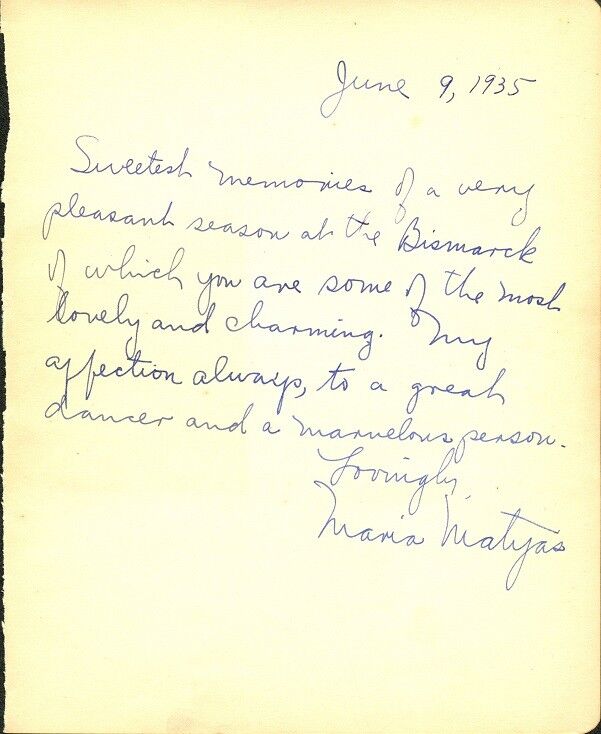 June 9, 1935
Sweetest memories of a very
pleasant season at the Bismarck
of which you are some of the most
lovely and charming. My
affection always, to a great
dancer and a marvelous person.
Lovingly,
Maria Matyas